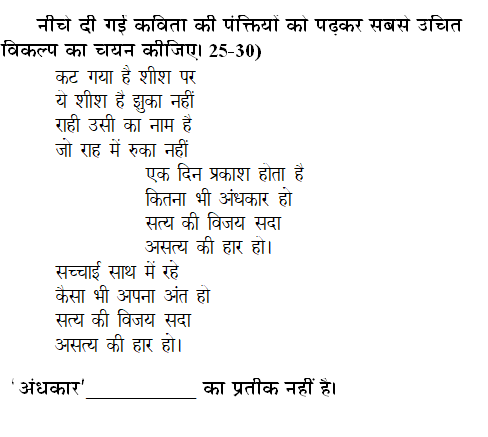 नीचे दी गई कविता की पंक्तियों को पढ़कर सबसे उचित
विकल्प का चयन कीजिए। 25-30)
कट गया है शीश पर
ये शीश है झुका नहीं
राही उसी का नाम है
जो राह में रुका नहीं
एक दिन प्रकाश होता है
कितना भी अंधकार हो
सत्य की विजय सदा
असत्य की हार हो।
सच्चाई साथ में रहे
कैसा भी अपना अंत हो
सत्य की विजय सदा
असत्य की हार हो।
'अंधकार'___________ का प्रतीक नहीं है।